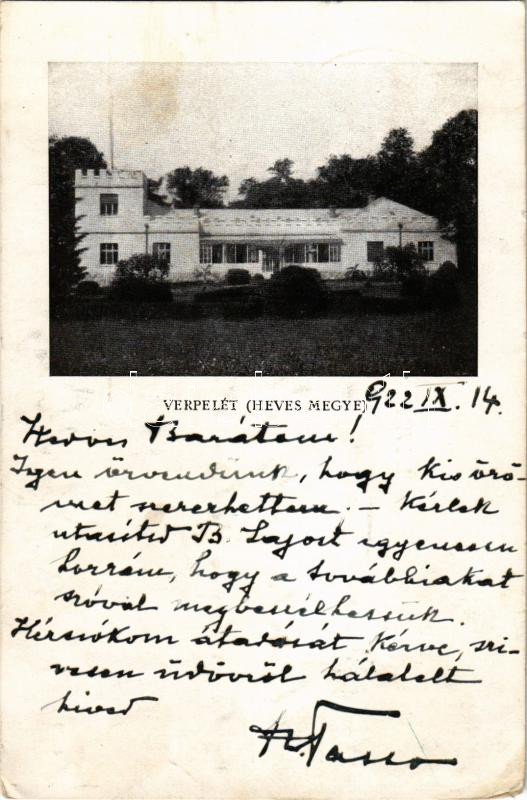 VERPELÉT (HEVES MEGYE)
922 IX. 14.
Kedves Barátom!
Igen örvendünk, hogy kis örö-
met szerezhettem. — Kérlek
utasítsd B. Lajost egyenesen
hozzám, hogy a továbbiakat
szóval megbeszélhessük.
Kézcsókom átadását kérve, szi-
vesen üdvözöl hálátelt
hived